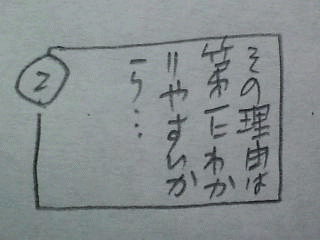 ②
その理由は
第一にわか
りやすいか
ら…